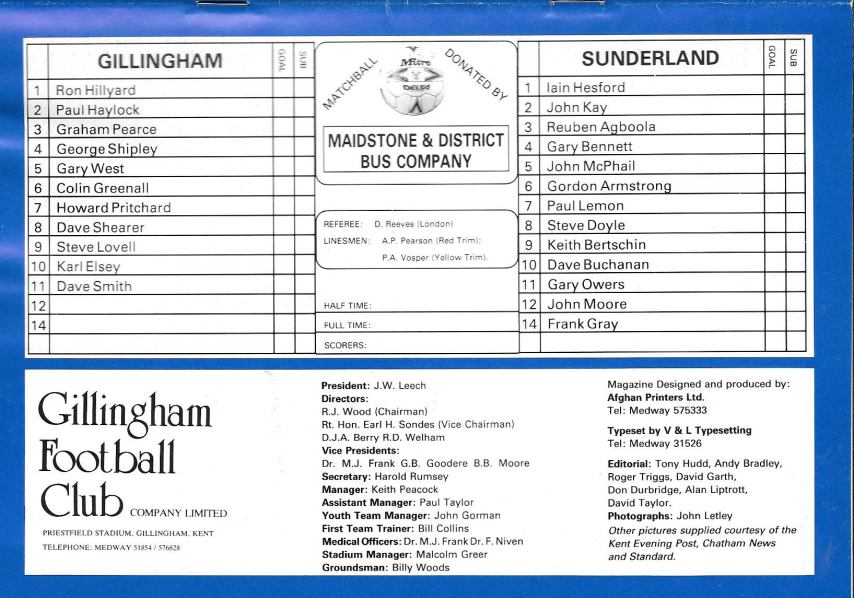 GILLINGHAM GOAL SUB
1 Ron Hillyard
2 Paul Haylock
3 Graham Pearce
4 George Shipley
5 Gary West
6 Colin Greenall
7 Howard Pritchard
8 Dave Shearer
9 Steve Lovell
10 Karl Elsey
11 Dave Smith
12
14
MATCHBALL DONATED BY
Mitre
DELTA
MAIDSTONE & DISTRICT
BUS COMPANY
REFEREE: D. Reeves (London)
LINESMEN: A.P. Pearson (Red Trim);
P.A. Vosper (Yellow Trim).
HALF TIME:
FULL TIME:
SCORERS:
SUNDERLAND GOAL SUB
1 Iain Hesford
2 John Kay
3 Reuben Agboola
4 Gary Bennett
5 John McPhail
6 Gordon Armstrong
7 Paul Lemon
8 Steve Doyle
9 Keith Bertschin
10 Dave Buchanan
11 Gary Owers
12 John Moore
14 Frank Gray
Gillingham
Football
Club COMPANY LIMITED
PRIESTFIELD STADIUM, GILLINGHAM, KENT
TELEPHONE: MEDWAY 51854 / 576828
President: J.W. Leech
Directors:
R.J. Wood (Chairman)
Rt. Hon. Earl H. Sondes (Vice Chairman)
D.J.A. Berry R.D. Welham
Vice Presidents:
Dr. M.J. Frank G.B. Goodere B.B. Moore
Secretary: Harold Rumsey
Manager: Keith Peacock
Assistant Manager: Paul Taylor
Youth Team Manager: John Gorman
First Team Trainer: Bill Collins
Medical Officers: Dr. M.J. Frank Dr. F. Niven
Stadium Manager: Malcolm Greer
Groundsman: Billy Woods
Magazine Designed and produced by:
Afghan Printers Ltd.
Tel: Medway 575333
Typeset by V & L Typesetting
Tel: Medway 31526
Editorial: Tony Hudd, Andy Bradley,
Roger Triggs, David Garth,
Don Durbridge, Alan Liptrott,
David Taylor.
Photographs: John Letley
Other pictures supplied courtesy of the
Kent Evening Post, Chatham News
and Standard.